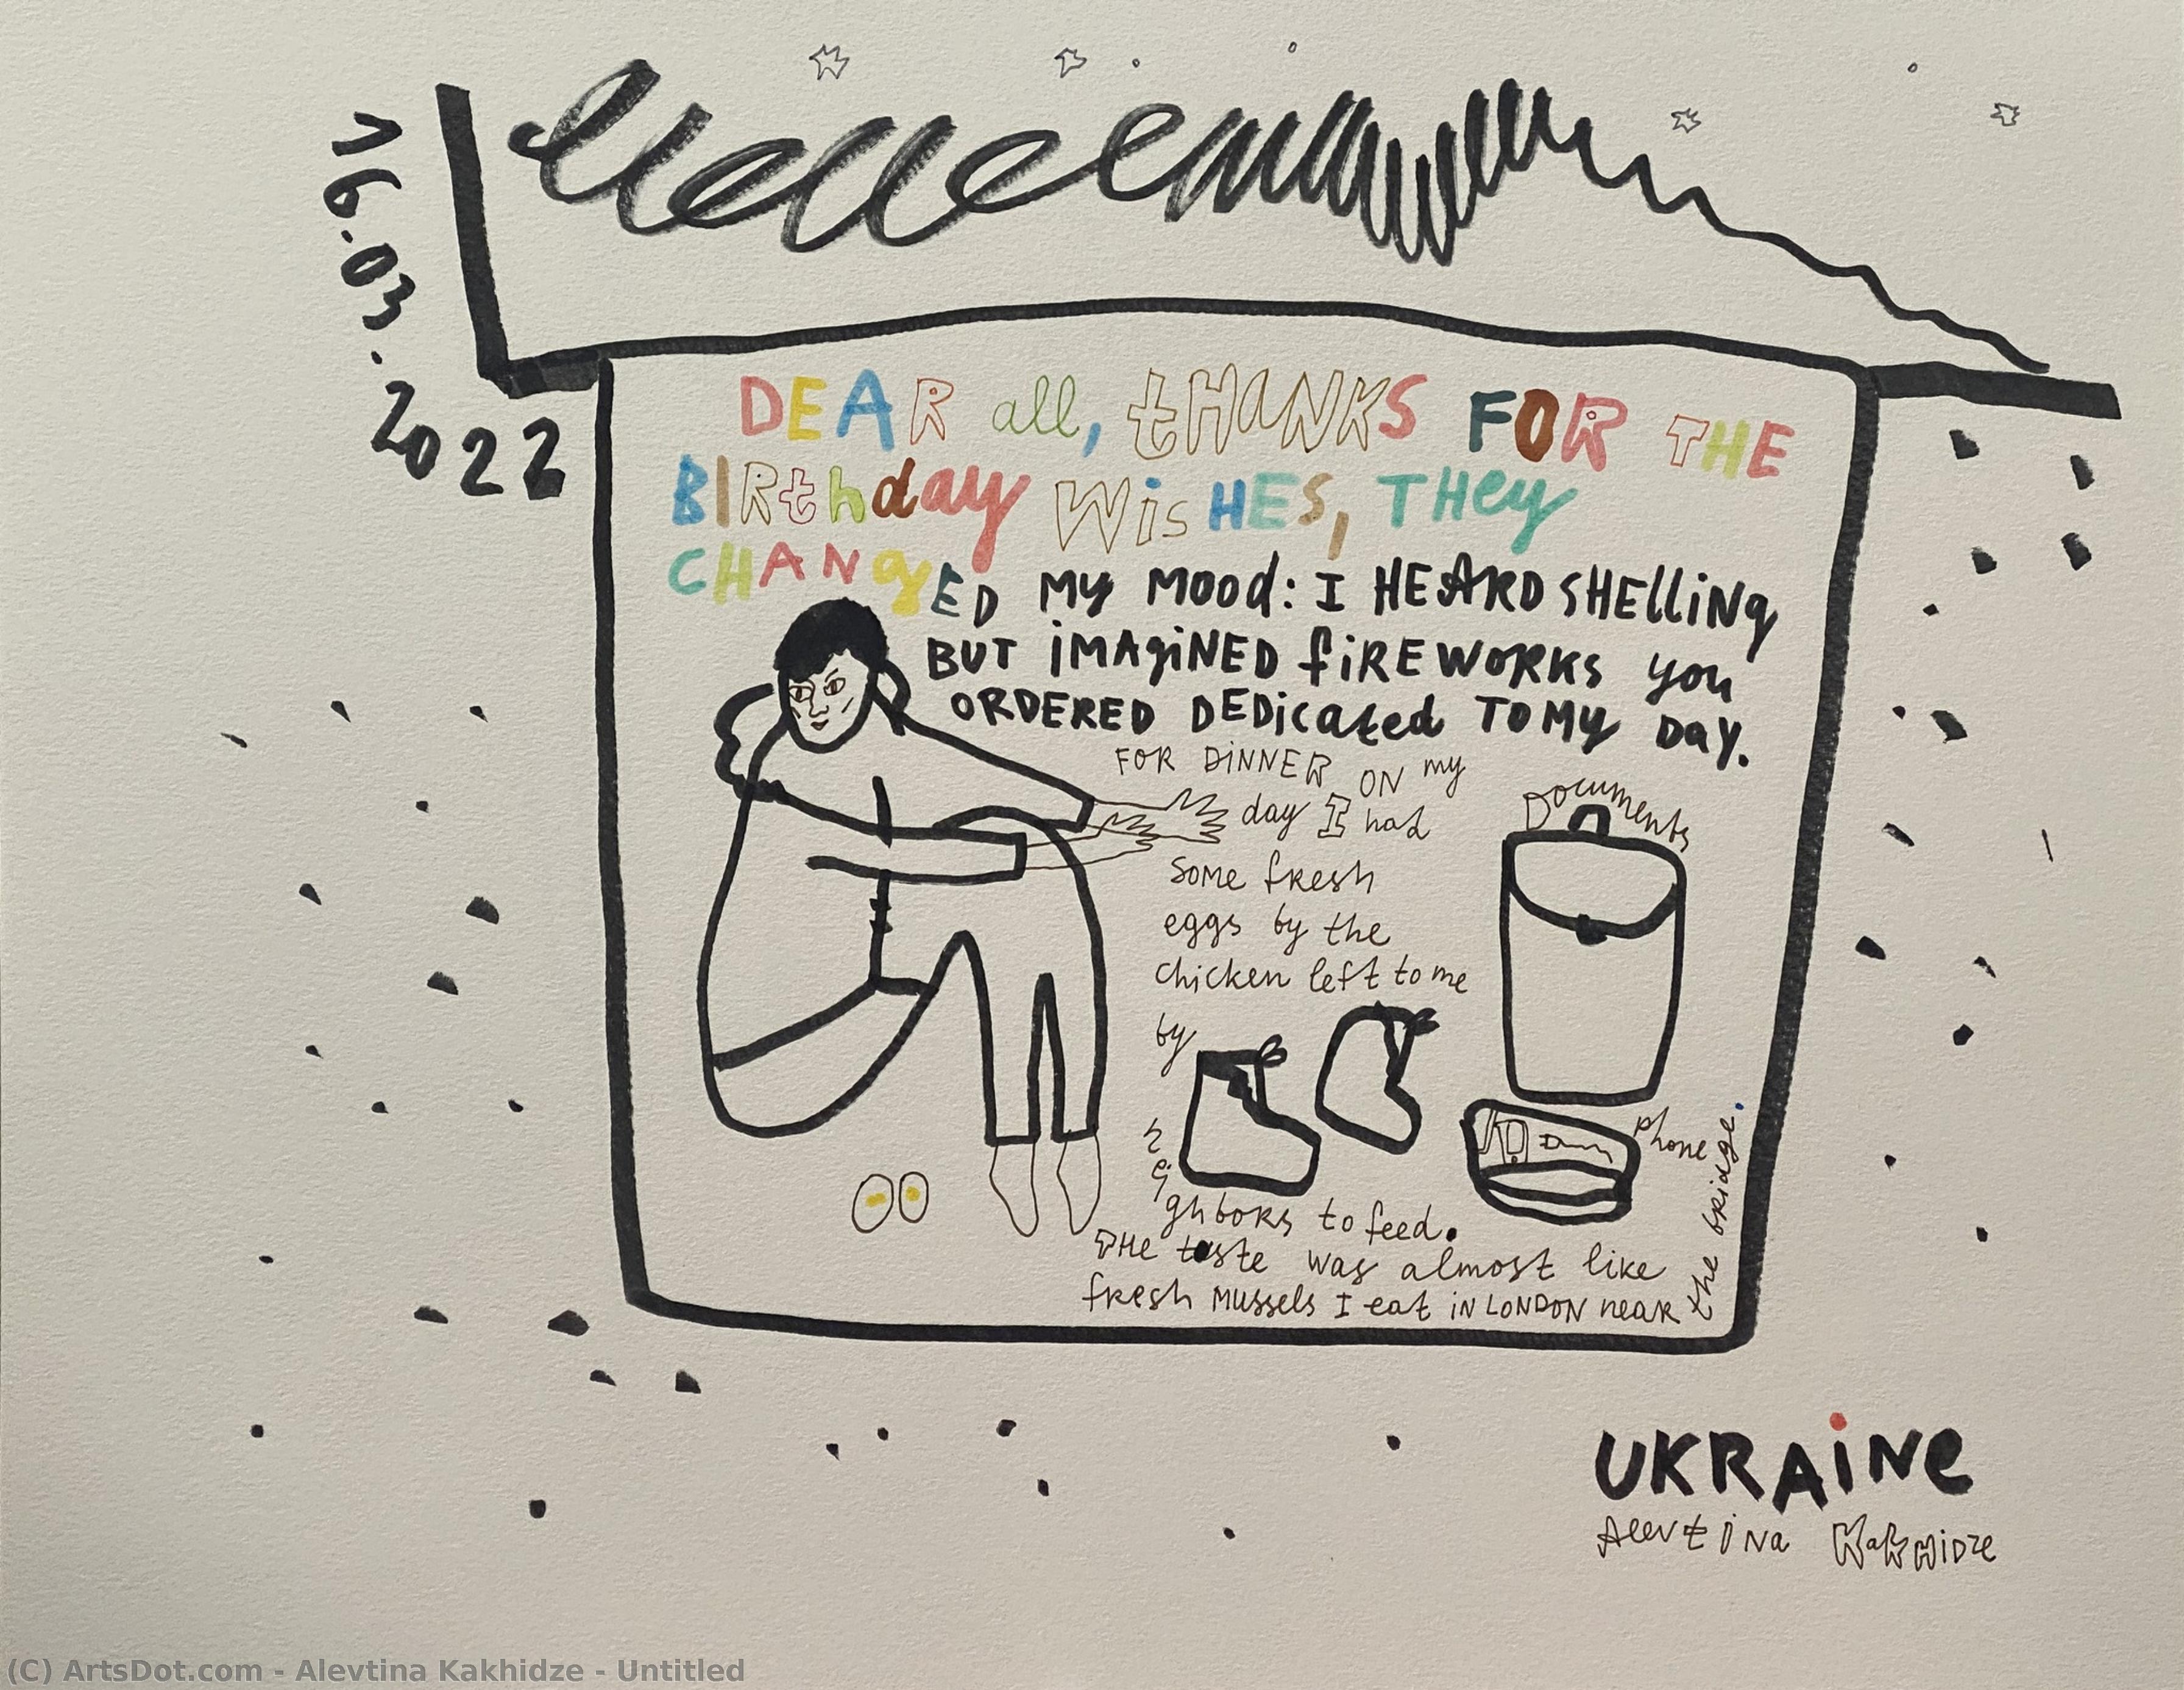 16.03.2022
DEAR all, tHANKS FOR THE
BIRthday WisHES, THEy
CHANgED My MOOd: I HEARD SHElliNg
BUT iMAgiNED fiREWORKS you
ORDERED DEDicated TO My DAy.
FOR DiNNER ON my
day I had
some fresh
eggs by the
chicken left to me
by
neighbors to feed.
THE taste was almost like
fresh mussels I eat iN LONDON near
the bridge.
Documents
phone
UKRAiNe
Alevtina KaKHidze
(C) ArtsDot.com - Alevtina Kakhidze - Untitled